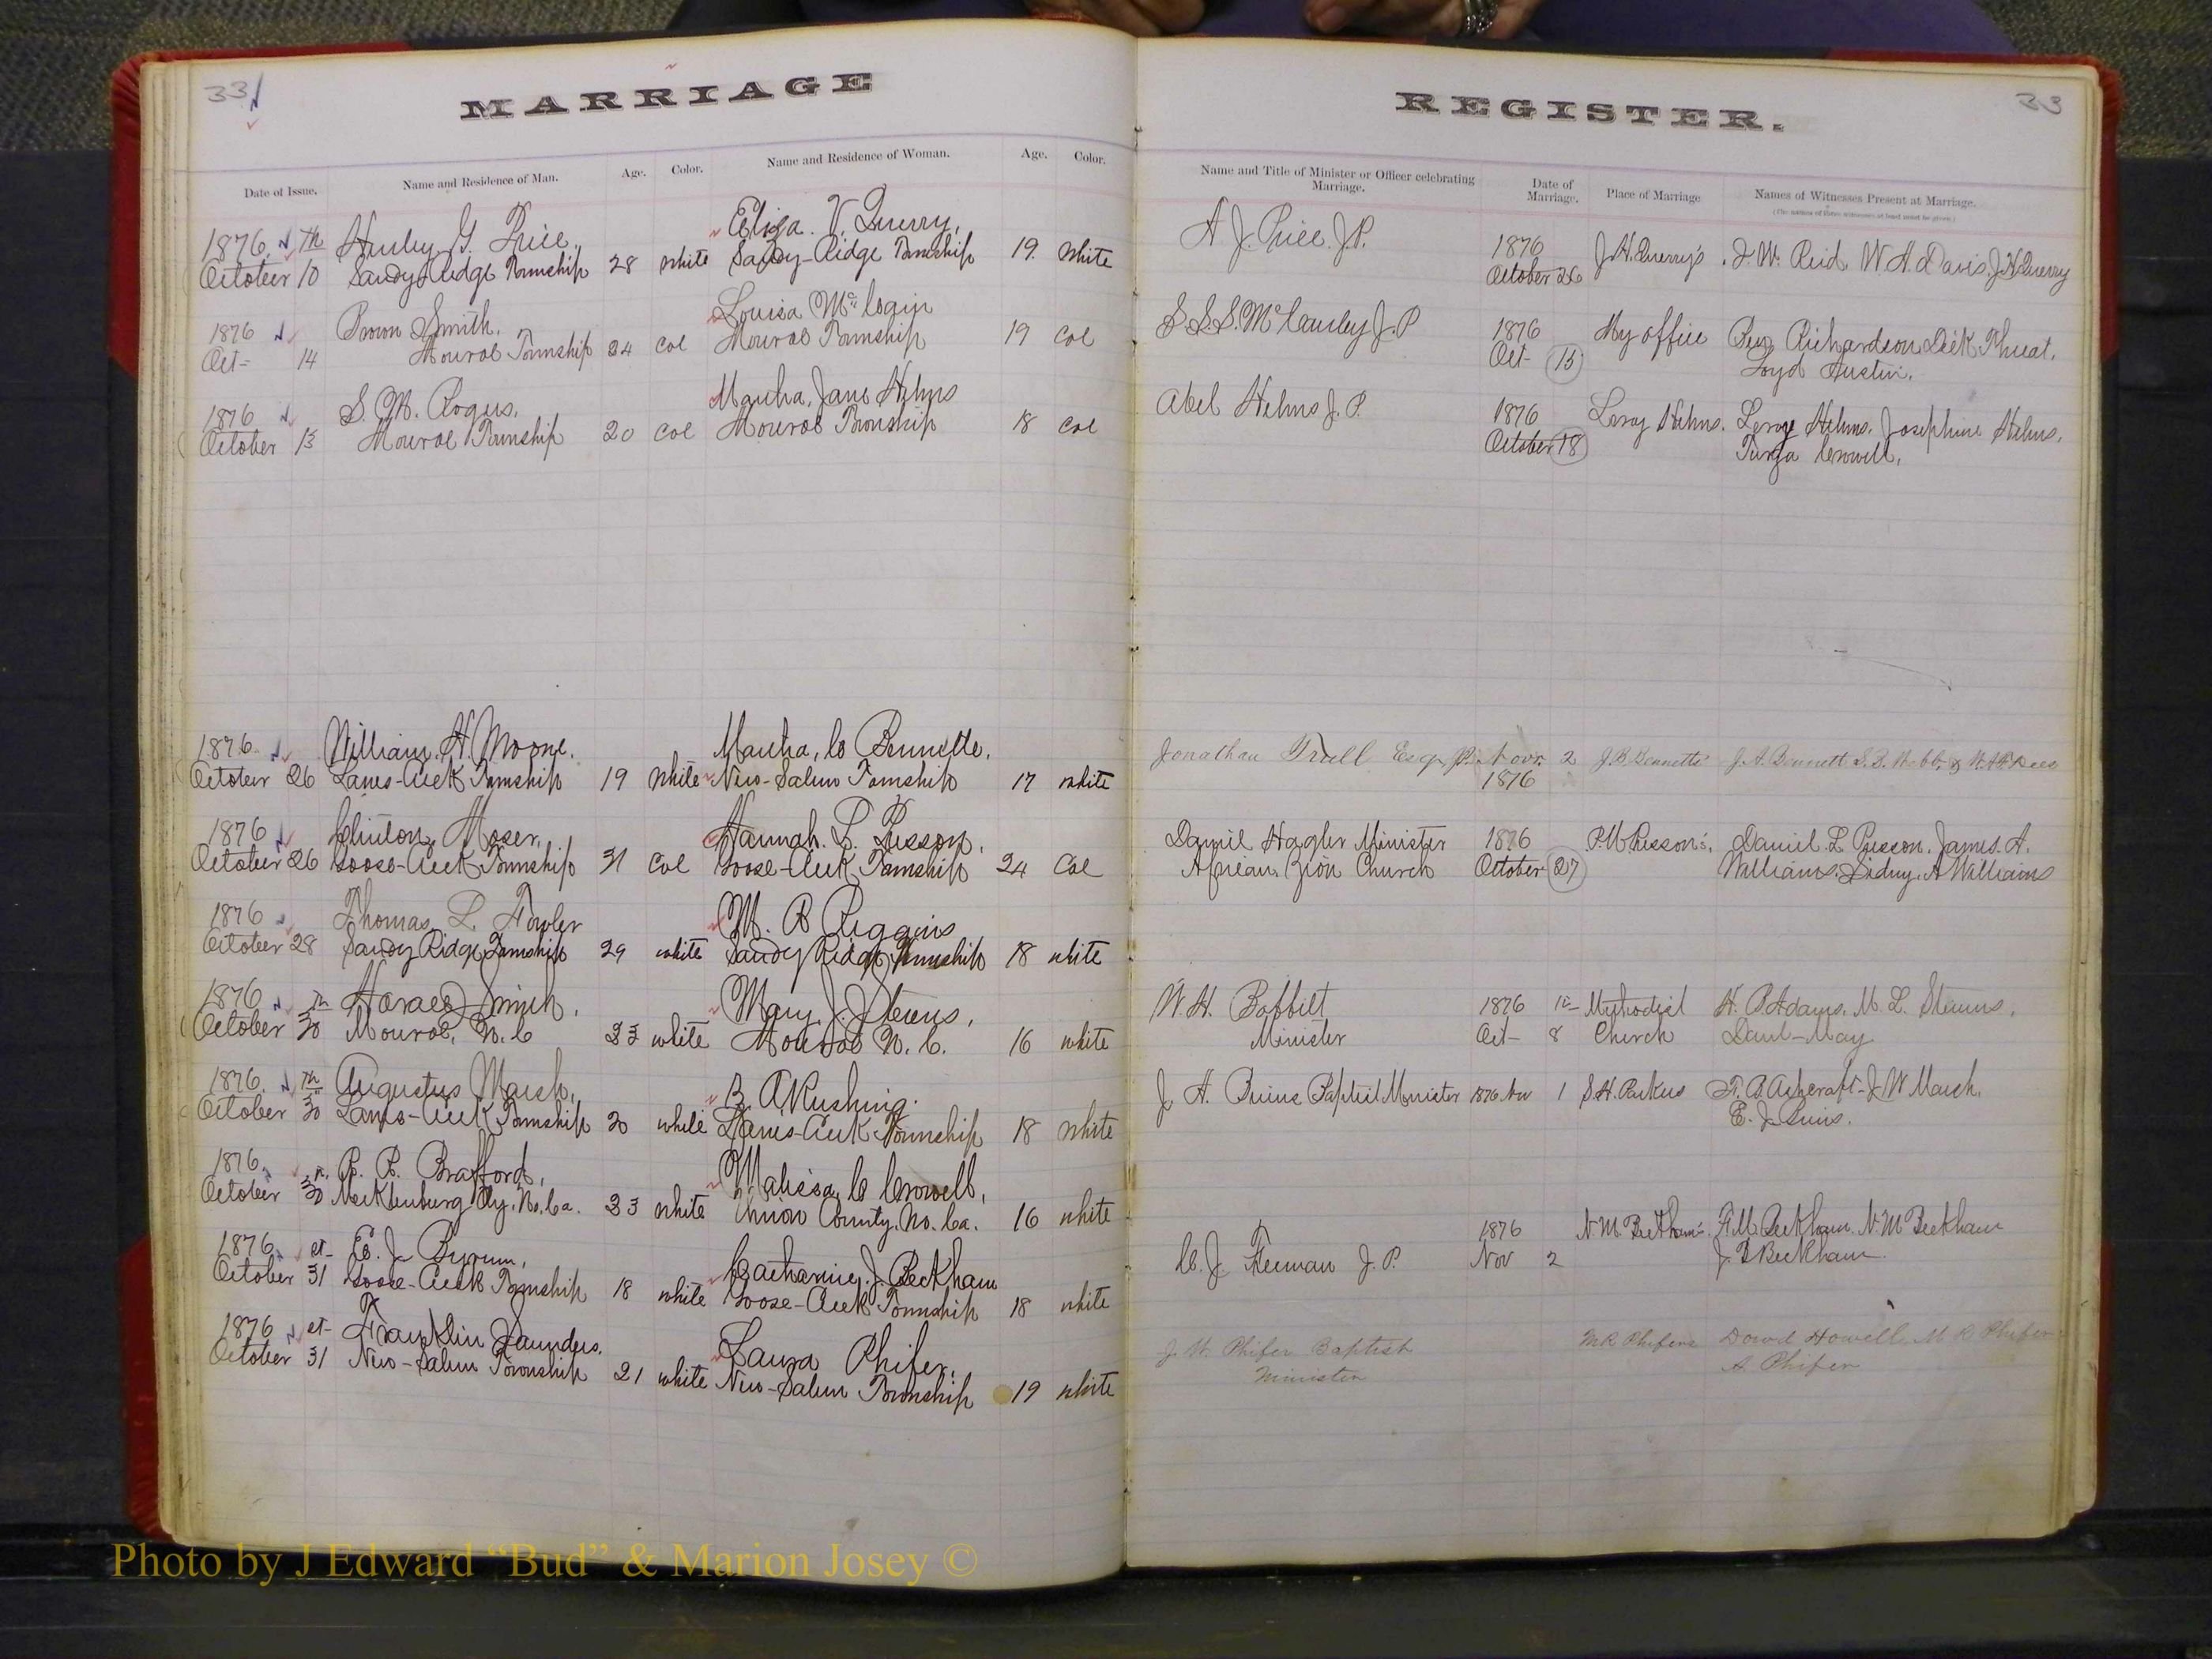 33
MARRIAGE
Date of Issue. Name and Residence of Man. Age. Color. Name and Residence of Woman. Age. Color.
1876 Th Hurley G. Price, Eliza. V. Querry,
October 10 Sandy Ridge Township 28 white Sandy-Ridge Township 19 White
1876 Brown Smith. Louisa
Oct- 14 Monroe Township 24 Col Monroe Township 19 Col
1876 S. M. Rogus, Martha, Jane Helms
October 13 Monroe Township 20 Col Monroe Township 18 Col
1876 William. H. Moore. Martha, C Bennette,
October 26 Lanes-Creek Township 19 White New-Salem Township 17 White
1876 Clinton, Moser, Hannah. L. Presson,
October 26 Goose-Creek Township 31 Col Goose-Creek Township 24 Col
1876 Thomas, L. Fowler M. A Riggins
October 28 Sandy Ridge Township 29 white Sandy Ridge Township 18 white
1876 Th Horace Smith, Mary. J. Stevens,
October 30 Monroe, N.C 23 white Monroe N.C. 16 white
1876 Th Augustus Marsh, B. A Rushing.
October 30 Lanes-Creek Township 20 white Lanes-Creek Township 18 White
1876 R. R. Brafford, Malissa, C Crowell,
October 30 Mecklenburg Cty, No. Ca. 23 white Union County, No. Ca. 16 white
1876 st E. J. Byrum, Catharine, J. Beckham
October 31 Goose-Creek Township 18 white Goose-Creek Township 18 white
1876 st Franklin Saunders. Laura Phifer,
October 31 New-Salem Township 21 white New-Salem Township 19 white
33
REGISTER.
Name and Title of Minister or Officer celebrating Marriage. Date of Marriage. Place of Marriage Names of Witnesses Present at Marriage.
(The names of three witnesses at least must be given.)
A. J. Price. J.P. 1876 J. H. Querry's J. W. Reid, W. A. Davis, J H Querry
October 26
S.S.S. McCauley J.P 1876 My office Richardson, Dick
Oct- 15 Loyd Austin.
Abel Helms J. P. 1876 Leroy Helms. Leroy Helms, Josephine Helms,
October 18 Crowell,
Jonathan Trull Esq J.P. Nov. 2 J. B. Bennette J. A. Bennett
1876
Daniel Hagler Minister 1876 P. W. Presson's, Daniel L Presson, James. A.
African Zion Church October 27 Williams, Sidney. A Williams
W. H. Bobbitt 1876 Methodist H. B Adams, M. L. Stevens,
Minister Oct- 8 Church May
J. A. Bivins Baptist Minister 1876 Nov 1 S. H. Parkers T. B. Ashcraft- J. W. March,
E. J.
1876 N. M. Beckham's F. M. Beckham, N. M Beckham
C. J. Feeman J. P. Nov 2 J. B Beckham
J. W. Phifer Baptist M R Phifers Dowd Howell, M R Phifer
Minister A Phifer
Photo by J Edward “Bud” & Marion Josey ©